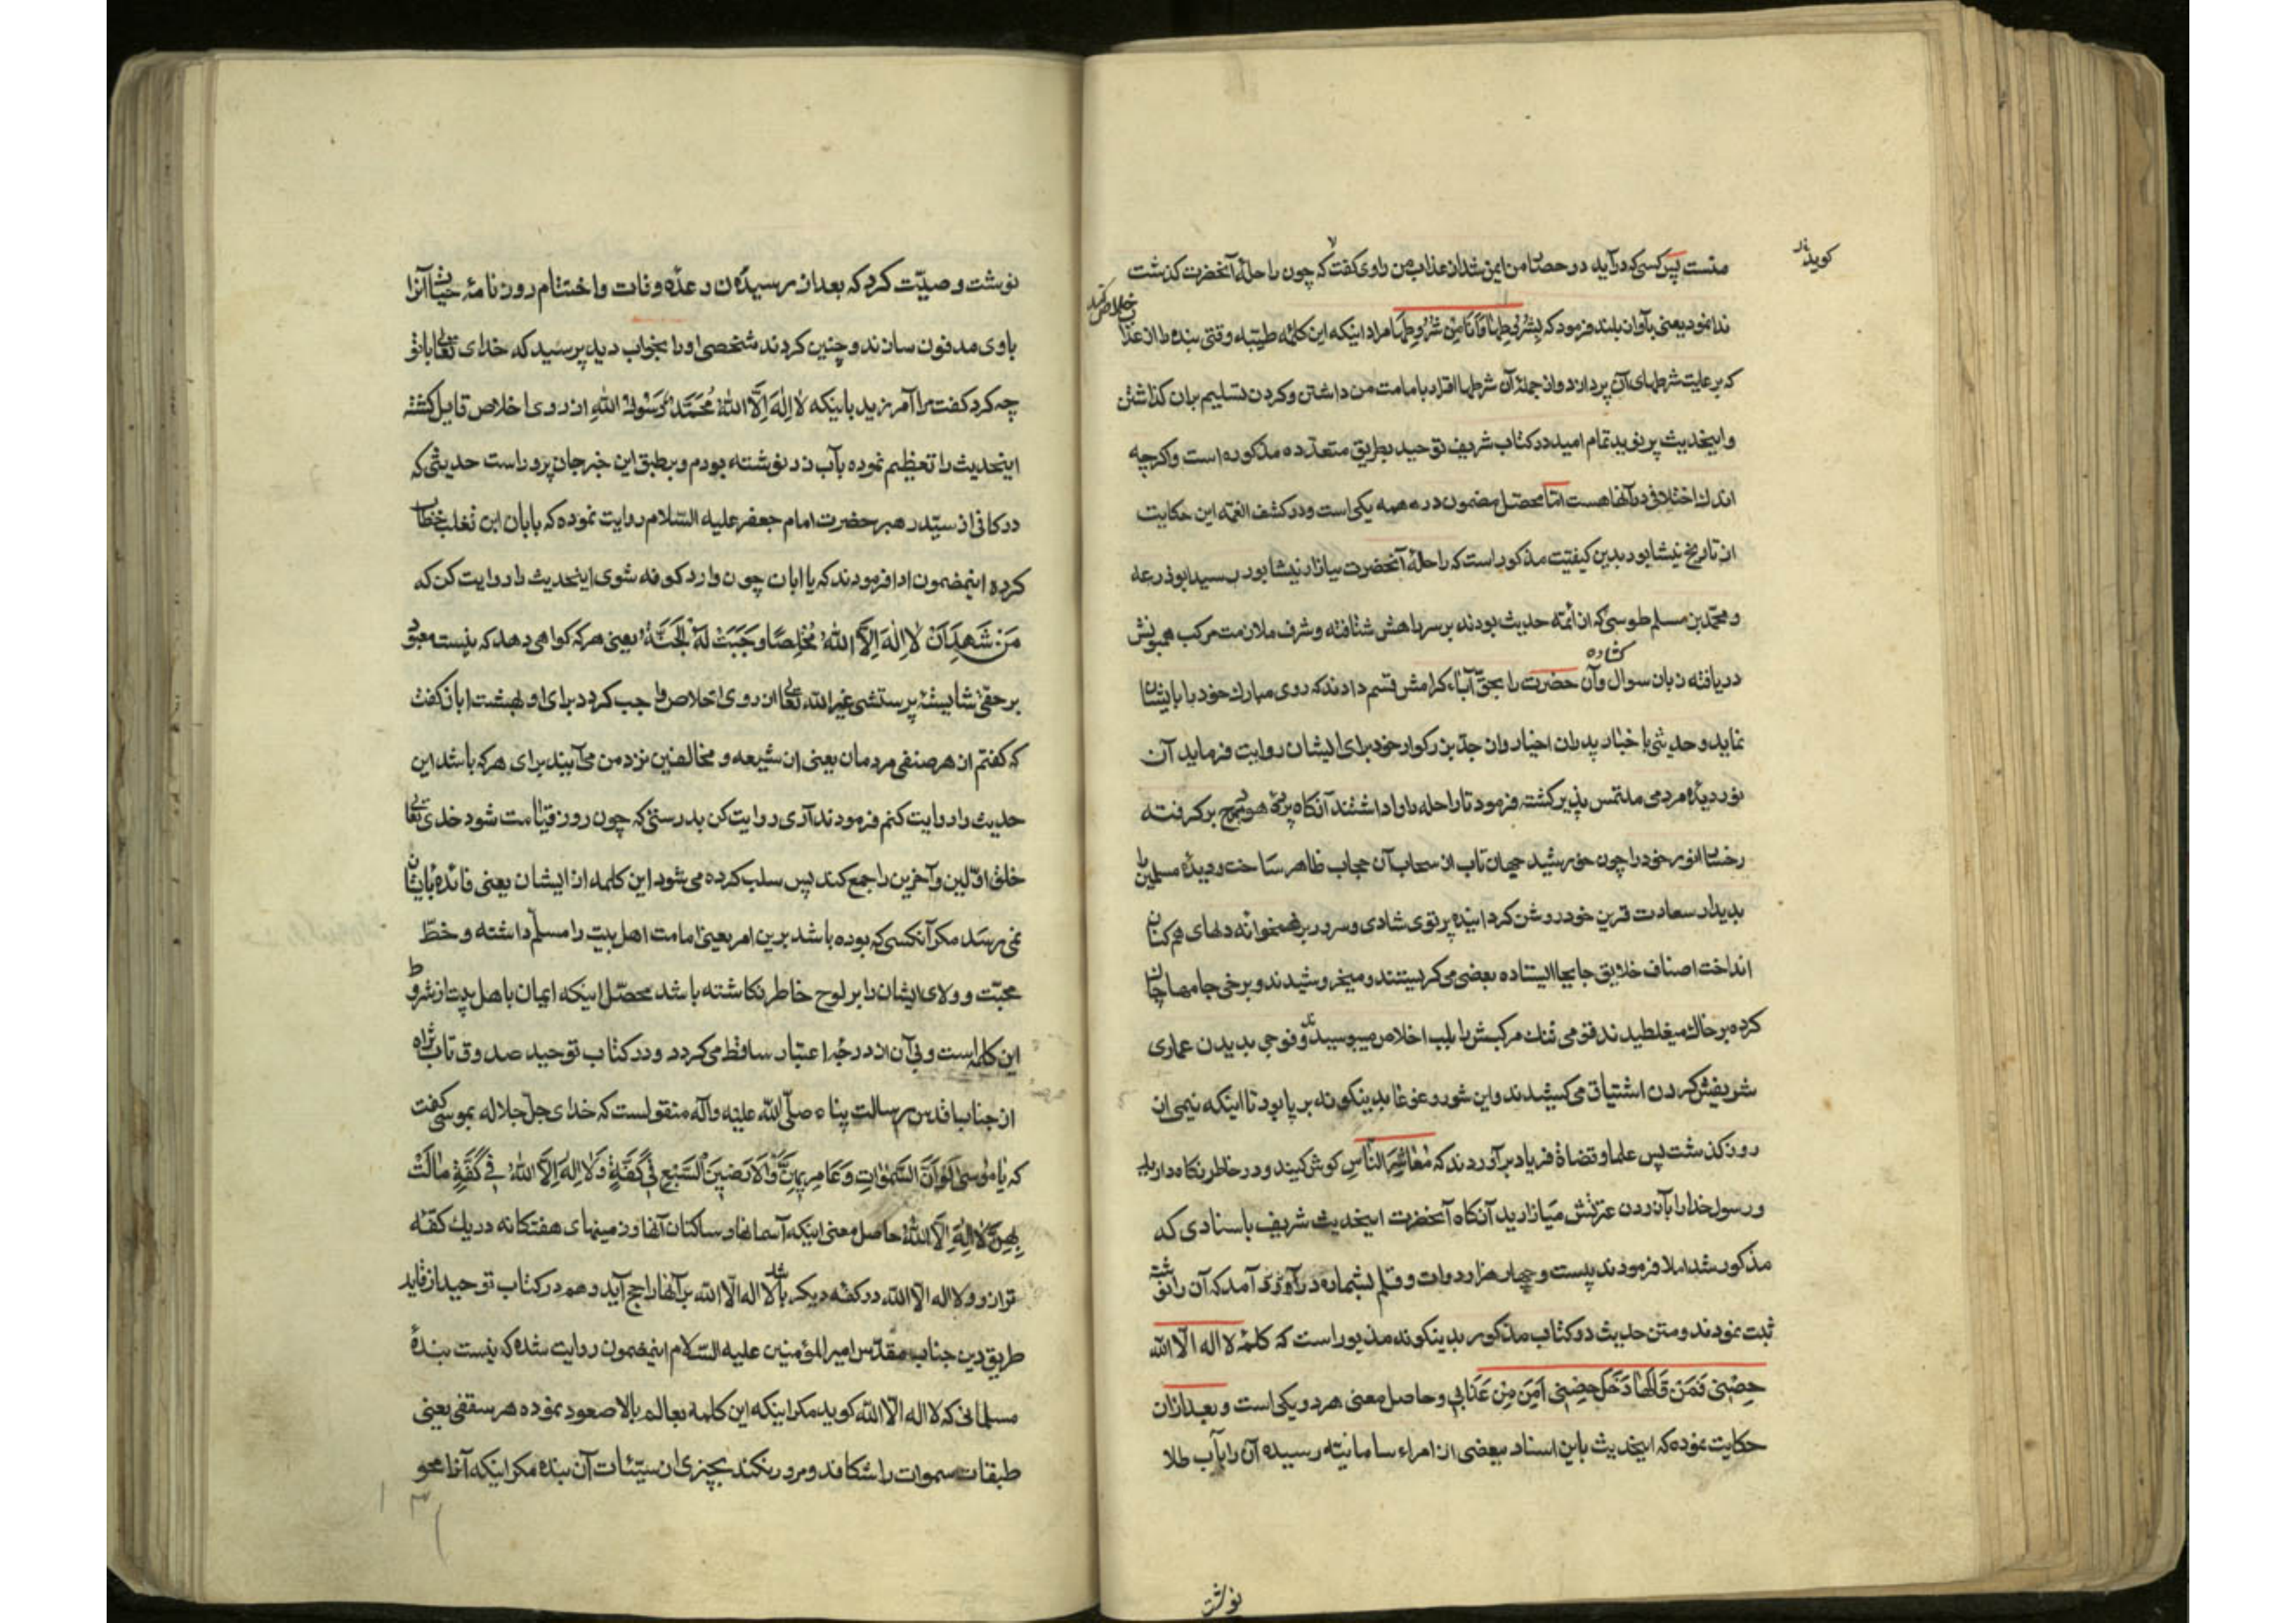 منست پس کسی که درآید در حصار من ایمن شد از عذاب من راوی گفت که چون راحلهٔ آنحضرت کذشت
کویند
ندا نمود یعنی بآواز بلند فرمود که بِشُرُوطِهَا وَاَنَا مِنْ شُرُوطِهَا مراد اینکه این کلمه طیبه وقتی بنده را از عذاب
خلاص کند
که برعایت شرطهای آن پردازد و از جملهٔ آن شرطها اقرار بامامت من داشتن و کردن تسلیم بران کذاشتن
و اینحدیث پر نوید تمام امید در کتاب شریف توحید بطریق متعدده مذکوره است و اکرچه
اندک اختلافی در آنها هست امّا محصّل مضمون در همه یکی است و در کشف الغمّه این حکایت
از تاریخ نیشابور بدین کیفیّت مذکور است که راحلهٔ آنحضرت ببازار نیشابور رسید ابوذرعه
و محمّد بن مسلم طوسی که از ائمّه حدیث بودند بر سر راهش شتافته و شرف ملازمت مرکب همیونش
دریافته زبان سوال کشاده وآن حضرت را بحقّ آباء کرامش قسم دادند که روی مبارک خود را بایشان
نماید و حدیثی باخبار پدران اخیار و از جدّ بزرکوار خود برای ایشان روایت فرماید آن
نور دیدهٔ مردمی ملتمس پذیر کشته فرمود تا راحله را واداشتند آنکاه پردهٔ هودج برکرفته
رخسار انور خود را چون خورشید جهان تاب از سحاب آن حجاب ظاهر ساخت و دیدهٔ مسلمین را
بدیدار سعادت قرین خود روشن کردانیده پرتوی شادی و سرور بر غمخوانه دلهای همکنان
انداخت اصناف خلایق جابجا ایستاده بعضی می کریستند و میخروشیدند و برخی جامها چاک
کرده بر خاک میغلطیدند قومی تنک مرکبش را بلب اخلاص میبوسیدند و فوجی بدیدن عماری
شریفش کردن اشتیاق می کشیدند و این شور و غوغا بدینکونه بر پا بود تا اینکه نیمی از
روز کذشت پس علما و قضاة فریاد برآوردند که مَعَاشِرَ النَّاسِ کوش کیند و در خاطر نکاه دارید
و رسول خدا را بآزردن عترتش میازارید آنکاه آنحضرت اینحدیث شریف باسنادی که
مذکور شد املا فرمودند بیست و چهار هزار دوات و قلم بشماره درآوری آمد که آن را نوشته
ثبت نمودند و متن حدیث در کتاب مذکور بدینکونه مذبور است که کلمهٔ لا اله الّا اللّه
حِصْنِی فَمَنْ قَالَهَا دَخَلَ حِصْنِی اَمِنَ مِنْ عَذَابِی و حاصل معنی هر دو یکی است و بعد ازان
حکایت نموده که اینحدیث باین اسناد ببعضی از امراء سامانیّه رسیده آن را بآب طلا
نوشت
نوشت و صیّت کرد که بعد از رسیدن وعدّه وفات و اختتام روزنامهٔ حیات آنرا
باوی مدفون سازند و چنین کردند شخصی او را بخواب دید پرسید که خدای تعالی باتو
چه کرد کفت مرا آمرزید باینکه لَا اِلٰهَ اِلَّا اللّٰهُ مُحَمَّدٌ رَسُولُ اللّٰهِ از روی اخلاص قایل کشته
اینحدیث را تعظیم نموده بآب زر نوشته بودم و برطبق این خبر جان پرور است حدیثی که
در کافی از سیّد رهبر حضرت امام جعفر علیه السّلام روایت نموده که بابان ابن تغلب خطاب
کرده اینمضمون ادا فرمودند که یا ابان چون وارد کوفه شوی اینحدیث را روایت کن که
مَنْ شَهِدَ اَنْ لَا اِلٰهَ اِلَّا اللّٰهُ مُخْلِصًا وَجَبَتْ لَهُ الْجَنَّةُ یعنی هر که کواهی دهد که نیست معبود
بر حقی شایستهٔ پرستشی غیر اللّه تعالی از روی اخلاص واجب کردد برای او بهشت ابان کفت
که کفتم از هر صنفی مردمان یعنی از شیعه و مخالفین نزد من می آیند برای هر که باشد این
حدیث را روایت کنم فرمودند آری روایت کن بدرستی که چون روز قیامت شود خدای تعالی
خلق اوّلین و آخرین را جمع کند پس سلب کرده می شود این کلمه از ایشان یعنی فائده بایشان
نمی رسد مکر آنکسی که بوده باشد برین امر یعنی امامت اهل بیت را مسلّم داشته و خطّ
محبّت و ولای ایشان را بر لوح خاطر نکاشته باشد محصّل اینکه ایمان باهل بیت از شروط
این کلمه است و بی آن از درجهٔ اعتبار ساقط می کردد و در کتاب توحید صدوق تاب ثراه
از جناب اقدس رسالت پناه صلّی اللّه علیه وآله منقولست که خدای جلّ جلاله بموسی کفت
که یَا مُوسٰی لَوْ اَنَّ السَّمٰوَاتِ وَعَامِرِیهِنَّ وَالْاَرَضِینَ السَّبْعِ فِی کَفَّةٍ وَلَا اِلٰهَ اِلَّا اللّٰهُ فِی کَفَّةٍ مَالَتْ
بِهِنَّ لَا اِلٰهَ اِلَّا اللّٰهُ حاصل معنی اینکه آسمانها و ساکنان آنها و زمینهای هفتکانه در یک کفّه
ترازو و لا اله الّا اللّه در کفّه دیکر باشد لا اله الّا اللّه برآنها راجح آید و هم در کتاب توحید از قاید
طریق دین جناب مقدّس امیر المؤمنین علیه السّلام اینمضمون روایت شده که نیست بندهٔ
مسلمانی که لا اله الّا اللّه کوید مکر اینکه این کلمه بعالم بالا صعود نموده هر سقفی یعنی
طبقات سموات را شکافد و مرور نکند بچیزی از سیّئات آن بنده مکر اینکه آنها محو